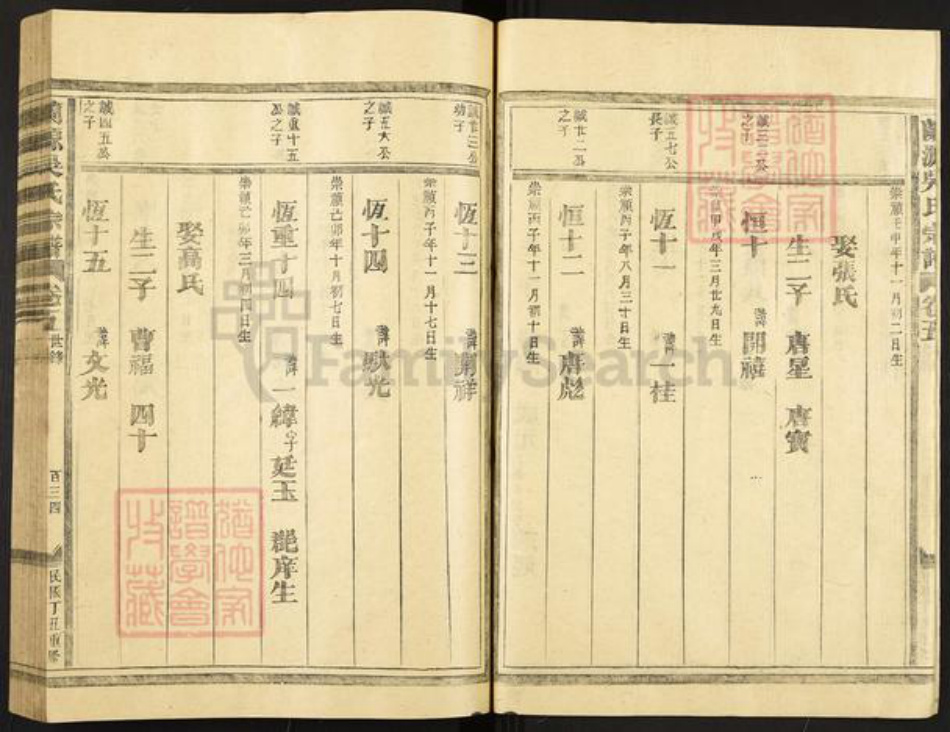 崇禎壬申年十一月初二日生
娶張氏
生二子 唐星 唐寶
誠三三公之子
恒十 諱開禧
崇禎甲戌年三月廿九日生
誠五七公長子
恆十一 諱一桂
崇禎丙子年八月三十日生
誠廿二公之子
恒十二 諱唐彪
崇禎丙子年十一月初十日生
誠廿三公幼子
恆十三 祥
崇禎丙子年十一月十七日生
誠五六公之子
恆十四 諱耿光
崇禎己卯年十月初七日生
誠重十五公之子
恆重十四 諱一緯 字廷玉 邑庠生
崇禎己卯年三月初四日生
娶高氏
生二子 曹福 四十
誠四五公之子
恆十五 諱文光
吳氏宗譜 卷之五 世錄
百三四
民國丁丑重修
吳氏宗譜 卷五
FamilySearch
譜學會收藏
譜學會收藏